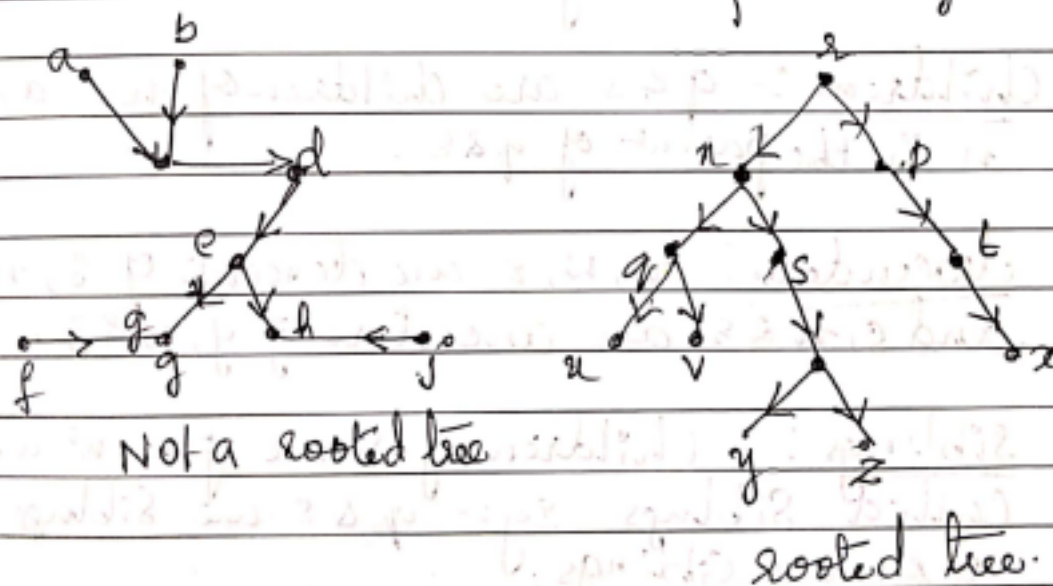 a
b
d
e
g
g
f
h
j
Not a rooted tree
r
n
p
q
s
t
u
v
x
y
z
rooted tree.